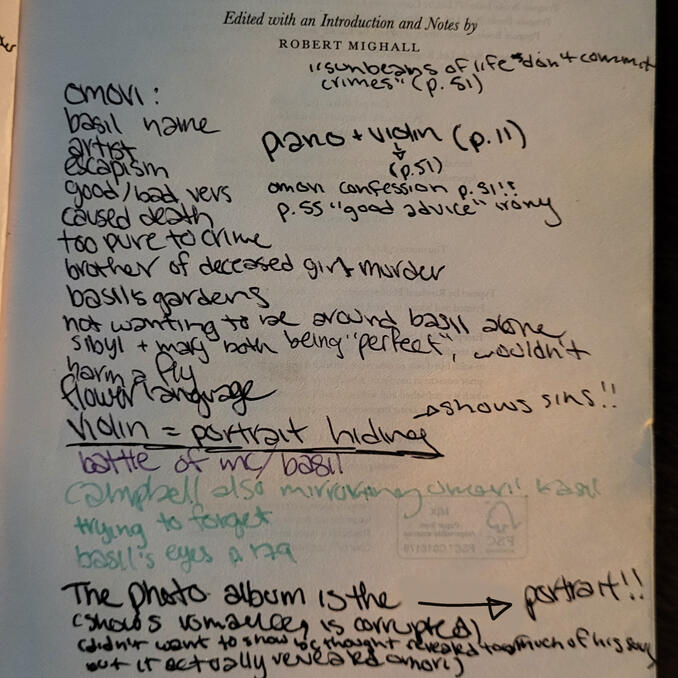 Edited with an Introduction and Notes by
ROBERT MIGHALL
"sunbeams of life "don't commit
crimes" (p. 51)
omori:
basil name
artist
escapism
good/bad vers
caused death
too pure to crime
brother of deceased girl murder
basil's gardens
not wanting to be around basil alone
sibyl + mary both being "perfect", wouldn't
harm a fly
flower language
violin = portrait hiding
→ shows sins!!
piano + violin (p. 11)
(p. 51)
omori confession p. 51!!
p. 55 "good advice" irony
battle of mc/basil
campbell also mirroring omori! basil
trying to forget
basil's eyes a 179
MIX
FSC
The photo album is the → portrait!!
(shows is corrupted)
(didn't want to show bc thought revealed too much of his soul
but it actually revealed omori)